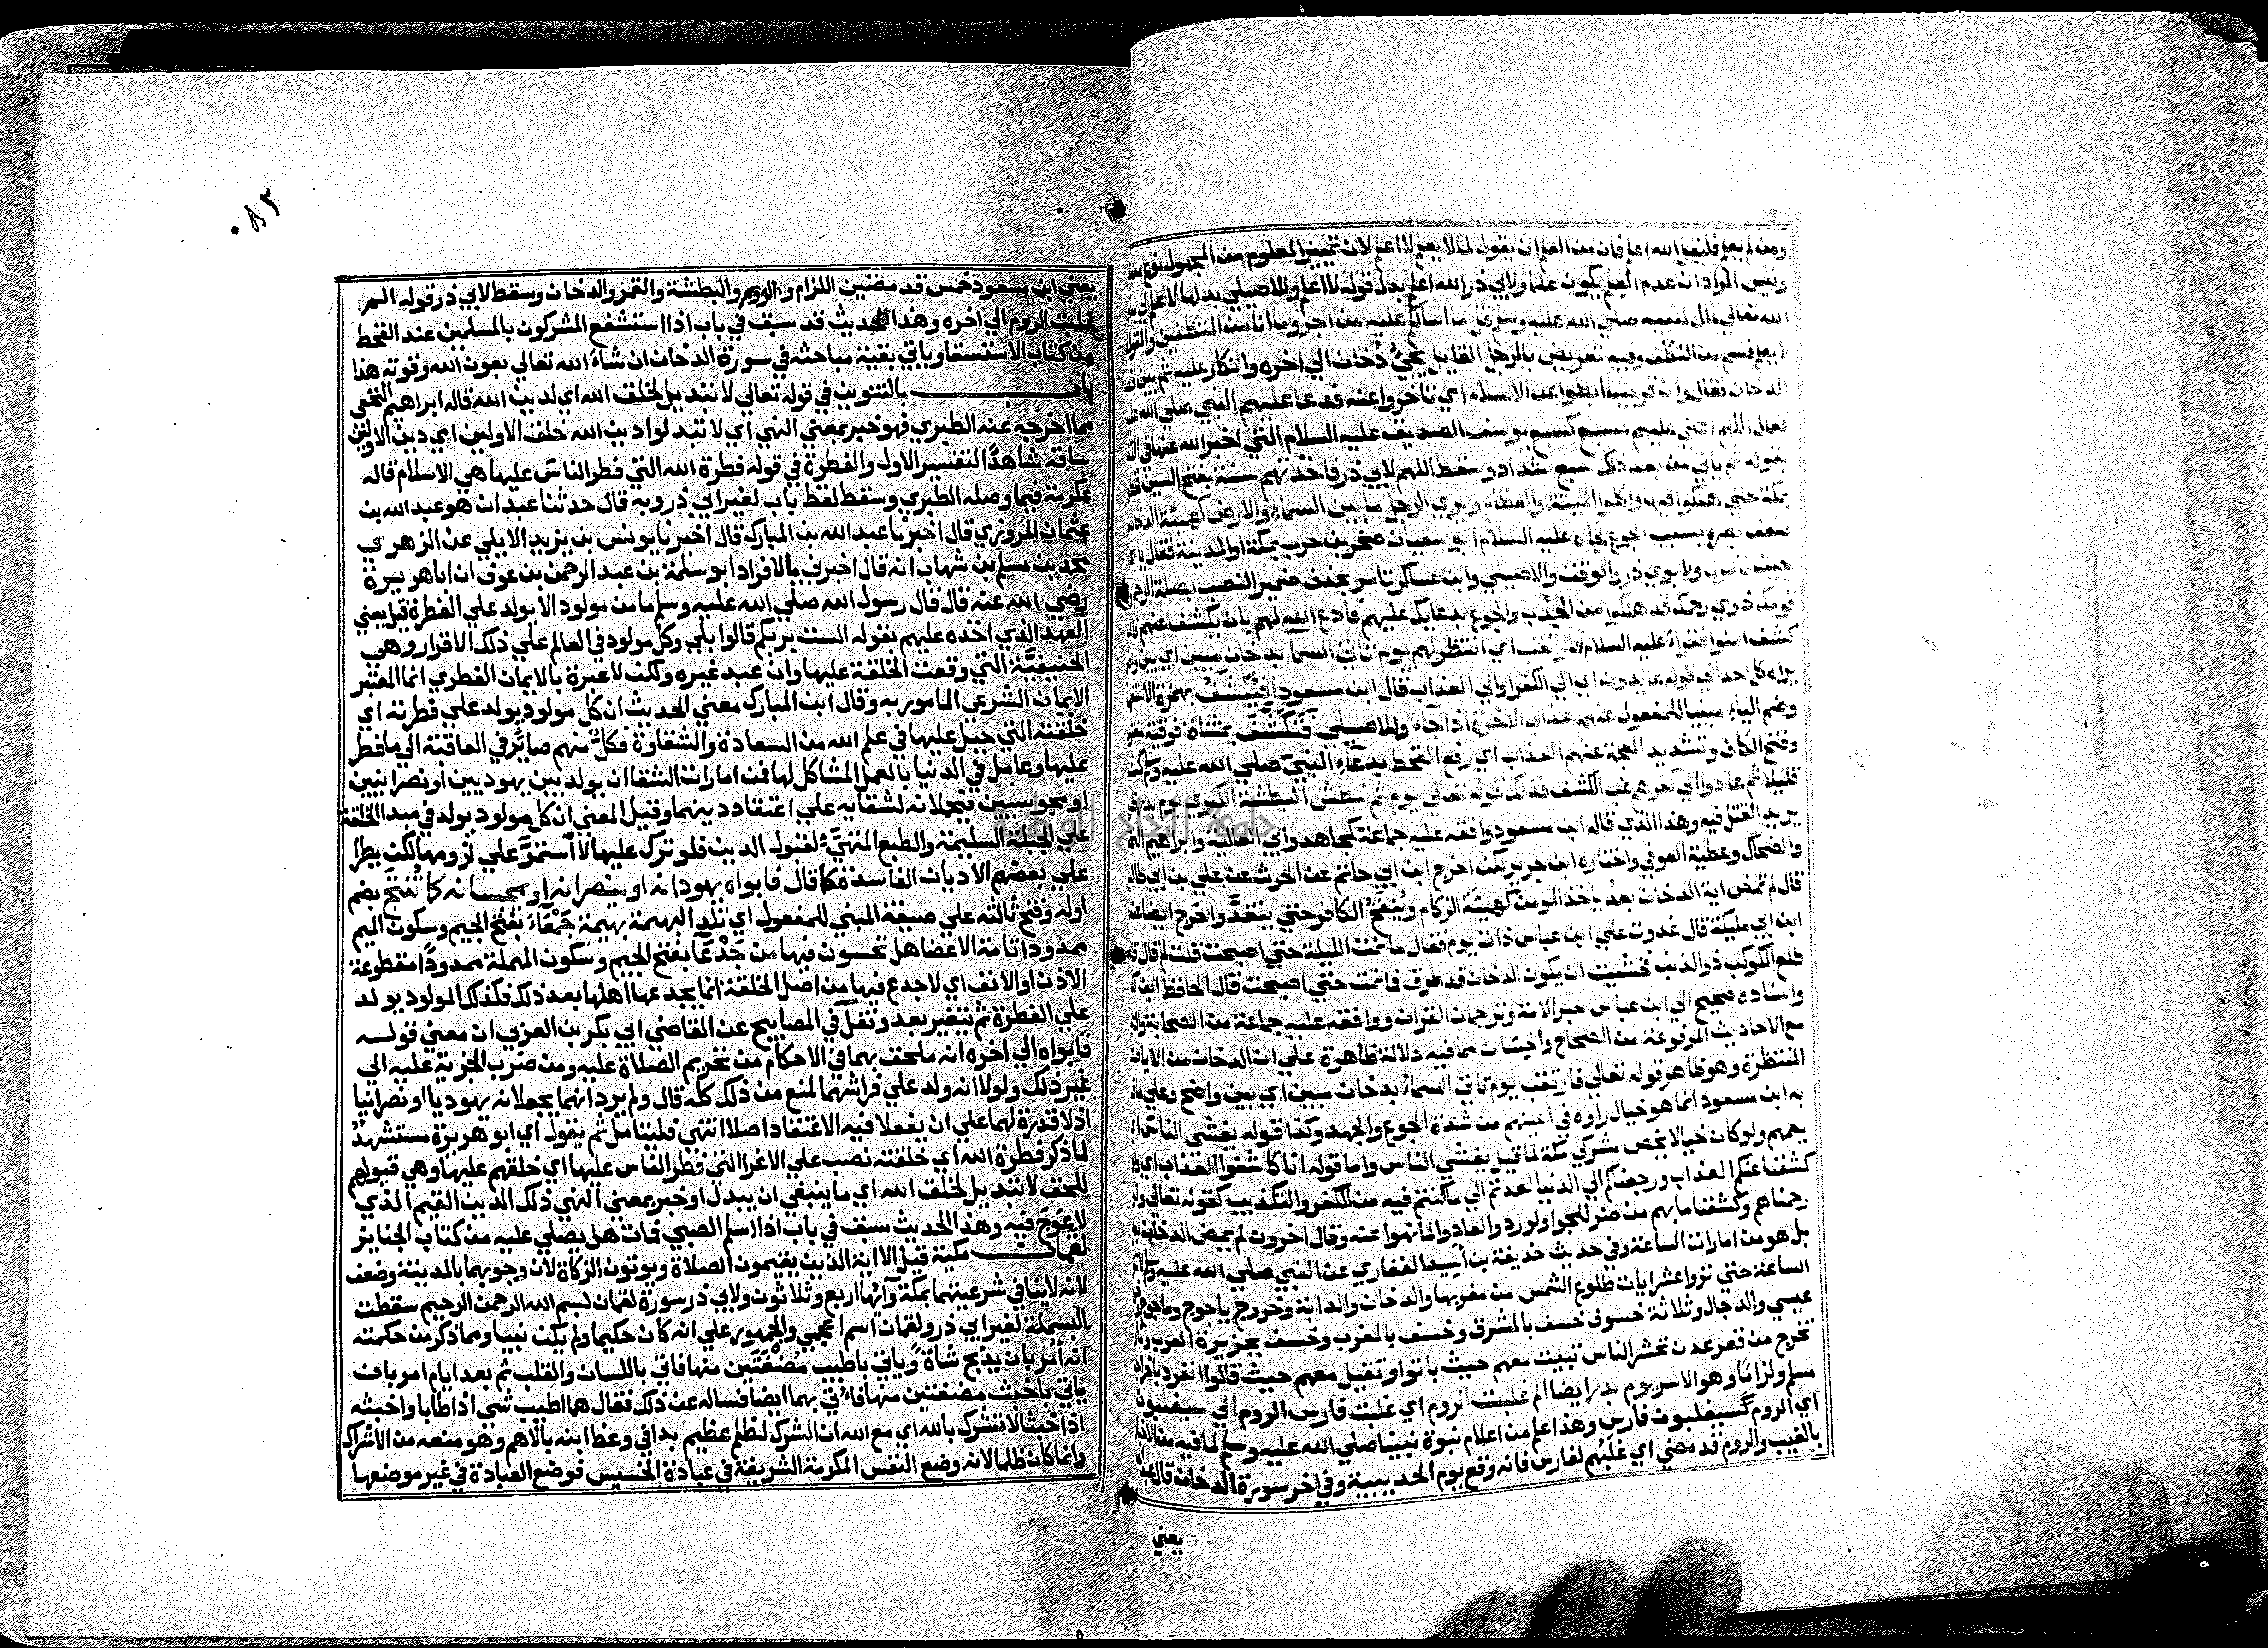 ومن لم يعلم فليقل الله اعلم فان من العلم ان يقول لما لا يعلم لا اعلم لان تمييز المعلوم من المجهول نوع من
وليس المراد ان عدم العلم يكون علما ولابي ذر الله اعلم بدل قوله لا اعلم وللاصيلي بدلها لا علم لي به
الله تعالي قال لنبيه صلي الله عليه وسلم قل ما اسالكم عليه من اجر وما انا من المتكلفين والقول
لا يعلم قسم من التكلف وفيه تعريض بالرجل القايل يجيُ دُخان الي اخره وانكار عليه ثم بين
الدخان فقال وان قريشا ابطوا عن الاسلام اي تاخروا عنه فدعا عليهم النبي صلي الله
فقال اللهم اعني عليهم بسبع كسبع يوسف الصديف عليه السلام التي اخبر الله عنها في
بقوله ثم ياتي من بعد ذلك سبع شداد وسقط اللهم لابي ذر فاخذتهم سنة بفتح السين
بمكة حتي هلكوا فيها واكلوا الميتة والعظام ويري الرجل ما بين السماء والارض كهيئة الدخان
ضعف بصره بسبب الجوع فجاه عليه السلام ابو سفيان صخر بن حرب بمكة او المدينة فقال يا
جيت تامرنا ولابوي ذر والوقت والاصيلي وابن عساكر تامر بحذف ضمير النصب بصلة الرحم
قومك ذوي رحمك قد هلكوا من الجدب والجوع بدعايك عليهم فادع الله لهم بان يكشف عنهم
كشف امنوا فقرا عليه السلام فارتقب اي انتظر لهم يوم تاتي السما بدخان مبين اي بين
يراه كل احد الي قوله عايدون اي الي الكفر او الي العذاب قال ابن مسعود افيُكشَفُ بهمزة
وضم الياء مبنيا للمفعول عنهم عذاب الاخرة اذا جاء وللاصيلي فَتَكَشَّفَ بمثناة فوقية
وفتح الكاف وتشديد المعجمة عنهم العذاب اي رفع القحط بدعاءِ النبيّ صلي الله عليه وسلم
قليلا ثم عادوا الي كفرهم غب الكشف فذلك قوله تعالي يوم نبطش البطشة الكبري يوم بدر
يريد القتل فيه وهذا الذي قاله ابن مسعود وافقه عليه جماعة كمجاهد وابي العالية وابراهيم
والضحاك وعطية العوفي واختاره ابن جرير لكن اخرج ابن ابي حاتم عن الحرث عن علي بن ابي طالب
قال لم تمض اية الدخان بعد ياخذ المومن كهيئة الزكام ويُنفَخُ الكافر حتي ينفد واخرج ايضا
ابن ابي مليكة قال غدوت علي ابن عباس ذات يوم فقال ما نمت الليلة حتي اصبحت قلت لم قال
طلع الكوكب ذو الذنب فخشيت ان يكون الدخان قد طرق فما نمت حتي اصبحت قال الحافظ ابن
واسناده صحيح الي ابن عباس حبر الامة وترجمان القران ووافقه عليه جماعة من الصحابة
مع الاحاديث المرفوعة من الصحاح والحسان مما فيه دلالة ظاهرة علي ان الدخان من الايات
المنتظرة وهو ظاهر قوله تعالي فارتقب يوم تاتي السماء بدخان مبين اي بين واضح وعلي ما
به ابن مسعود انما هو خيال راوه في اعينهم من شدة الجوع والجهد وكذا قوله يغشي الناس
يعمهم ولو كان خيالا يخص مشركي مكة لما قيل يغشي الناس واما قوله انا كاشفوا العذاب اي
كشفنا عنكم العذاب ورجعناكم الي الدنيا لعدتم الي ما كنتم فيه من الكفر والتكذيب كقوله تعالي ولو
رحمناهم وكشفنا ما بهم من ضر للجوا ولو ردوا لعادوا لما نهوا عنه وقال اخرون لم يمض الدخان
بل هو من امارات الساعة وفي حديث حذيفة بن اَسِيد الغفاري عن النبي صلي الله عليه وسلم
الساعة حتي تروا عشر ايات طلوع الشمس من مغربها والدخان والدابة وخروج ياجوج وماجوج
عيسي والدجال وثلاثة خسوف خسف بالمشرق وخسف بالمغرب وخسف بجزيرة العرب
تخرج من قعر عدن تحشر الناس تبيت معهم حيث باتوا وتقيل معهم حيث قالوا انفرد باخراجه
مسلم ولزاما وهو الاسر يوم بدر ايضا الم غلبت الروم اي غلبت فارس الروم الي سيغلبون
اي الروم سيغلبون فارس وهذا علم من اعلام نبوة نبينا صلي الله عليه وسلم لما فيه من
بالغيب والروم قد مضي اي غَلَبُهُم لفارس فانه وقع يوم الحديبية وفي اخر سورة الدخان قال
يعني
٠٨٢
يعني ابن مسعود خمس قد مضين اللزام والروم والبطشة والقمر والدخان وسقط لابي ذر قوله الم
غلبت الروم الي اخره وهذا الحديث قد سبق في باب اذا استشفع المشركون بالمسلمين عند القحط
من كتاب الاستسقا وياتي بقية مباحثه في سورة الدخان ان شاءَ الله تعالي بعون الله وقوته هذا
باب بالتنوين في قوله تعالي لا تبديل لخلق الله اي لدين الله قاله ابراهيم النخعي
مما اخرجه عنه الطبري فهو خبر بمعني النهي اي لا تبدلوا دين الله خلق الاولين اي دين الاولين
ساقه شاهدًا لتفسير الاول والفطرة في قوله فطرة الله التي فطر الناسَ عليها هي الاسلام قاله
عكرمة فيما وصله الطبري وسقط لفظ باب لغير ابي ذر وبه قال حدثنا عبدان هو عبد الله بن
عثمان المروزي قال اخبرنا عبد الله بن المبارك قال اخبرنا يونس بن يزيد الايلي عن الزهري
محمد بن مسلم بن شهاب انه قال اخبرني بالافراد ابو سلمة بن عبد الرحمن بن عوف ان ابا هريرة
رضي الله عنه قال قال رسول الله صلي الله عليه وسلم ما من مولود الا يولد علي الفطرة قيل يعني
العهد الذي اخذه عليهم بقوله الست بربكم قالوا بلي وكل مولود في العالم علي ذلك الاقرار وهي
الحنيفيَّة التي وقعت الخلقة عليها وان عبد غيره ولكن لا عبرة بالايمان الفطري انما المعتبر
الايمان الشرعي المامور به وقال ابن المبارك معني الحديث ان كل مولود يولد علي فطرته اي
خلقته التي جبل عليها في علم الله من السعادة والشقاوة فكلٌ منهم صائر في العاقبة الي ما فطر
عليها وعامل في الدنيا بالعمل المشاكل لها فمن امارات الشقا ان يولد بين يهوديين او نصرانيين
او مجوسيين فيحملانه لشقايه علي اعتقاد دينهما وقيل المعني ان كل مولود يولد في مبدا الخلقة
علي الجبلة السليمة والطبع المتهيَّئ لقبول الدين فلو ترك عليها لاستمرّ علي لزومها لكن يطرا
علي بعضهم الاديان الفاسدة كما قال فابواه يهودانه او ينصرانه او يمجسانه كما تُنتَج بضم
اوله وفتح ثالثه علي صيغة المبني للمفعول اي تلد البهيمة بهيمة جَمْعَاءَ بفتح الجيم وسكون الميم
ممدودا تامة الاعضا هل تحسون فيها من جَدْعَا بفتح الجيم وسكون المهملة ممدودًا مقطوعة
الاذن او الانف اي لا جدع فيها من اصل الخلقة انما يجدعها اهلها بعد ذلك فكذلك المولود يولد
علي الفطرة ثم يتغير بعد ونقل في المصابيح عن القاضي ابي بكر بن العربي ان معني قوله
فابواه الي اخره انه ملحق بهما في الاحكام من تحريم الصلاة عليه ومن ضرب الجزية عليه الي
غير ذلك ولولا انه ولد علي فراشهما لمنع من ذلك كله قال ولم يرد انهما يجعلانه يهوديا او نصرانيا
اذ لا قدرة لهما علي ان يفعلا فيه الاعتقاد اصلا انتهي فليتامل ثم يقول اي ابو هريرة مستشهدُ
لما ذكر فطرة الله اي خلقته نصب علي الاغرا التي فطر الناس عليها اي خلقهم عليها وهي قبولهم
للحق لا تبديل لخلق الله اي ما ينبغي ان يبدل او خبر بمعني النهي ذلك الدين القيم الذي
لا عِوَج فيه وهذا الحديث سبق في باب اذا اسلم الصبي فمات هل يصلي عليه من كتاب الجنايز
لقمان مكية قيل الا اية الذين يقيمون الصلاة ويوتون الزكاة لان وجوبهما بالمدينة وضعف
لانه لا ينافي شرعيتهما بمكة وآيُها اربع وثلاثون ولابي ذر سورة لقمان بسم الله الرحمن الرحيم سقطت
البسملة لغير ابي ذر ولقمان اسم اعجمي والجمهور علي انه كان حكيما ولم يكن نبيا ومما ذكر من حكمته
انه أُمر بان يذبح شاة وياتي باطيب مُضغَتَين منها فاتي باللسان والقلب ثم بعد ايام امر بان
ياتي باخبث مضغتين منها فاتي بهما ايضا فساله عن ذلك فقال هما اطيب شي اذا طابا واخبثه
اذا خبثا لا تشرك بالله اي مع الله ان الشرك لظلم عظيم بدا في وعظ ابنه بالاهم وهو منعه من الاشراك
وانما كان ظلما لانه وضع النفس المكرمة الشريفة في عبادة الخسيس فوضع العبادة في غير موضعها